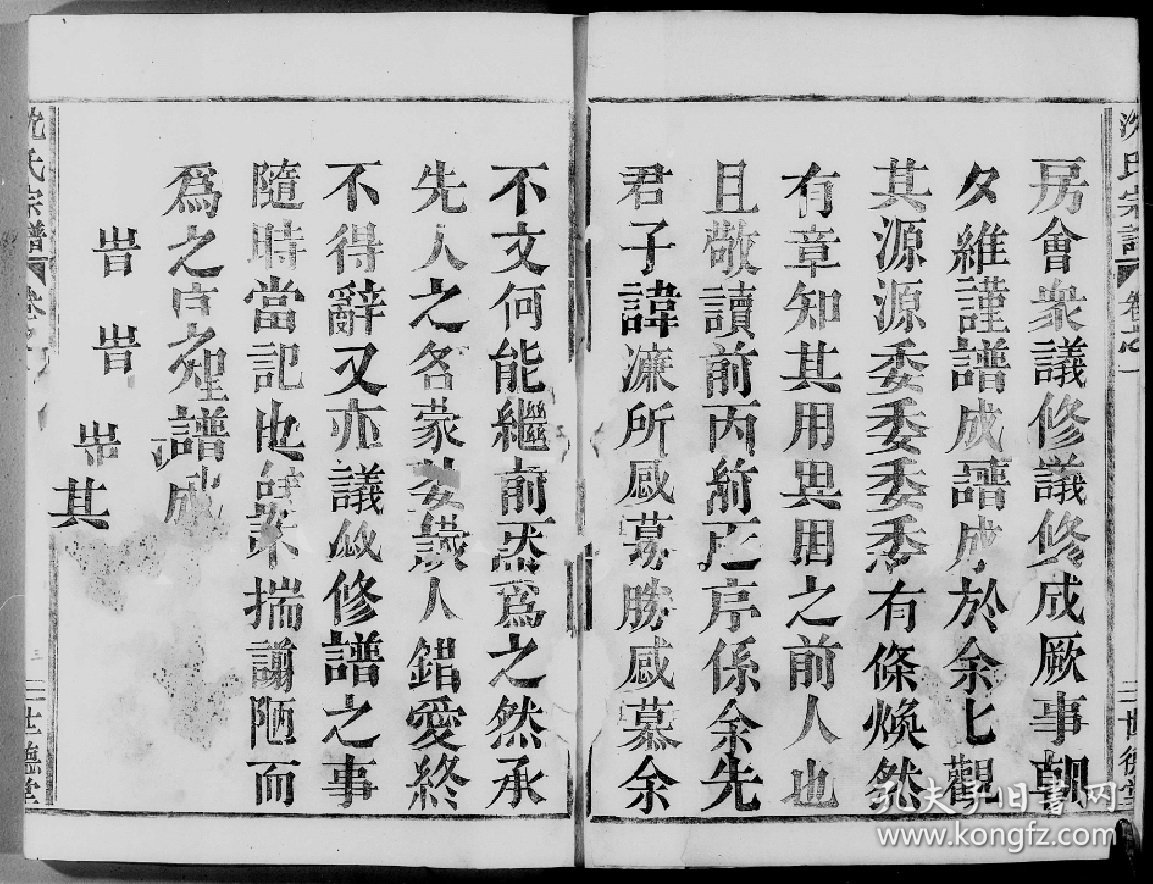 房會衆議修議修成厥事朝
夕維謹譜成譜成於余七觀
其源源委委委委有條煥然
有章知其用異用之前人也
且敬讀前丙前丙序係余先
君子諱濂所感慕勝感慕余
不文何能繼前為之然承
先人之名蒙委人錯愛終
不得辭又亦議修譜之事
隨時當記揣謭陋而
為之序之譜成
旹旹
其
沈氏宗譜
卷之一
世德堂
沈氏宗譜
世德堂
孔夫子旧书网
www.kongfz.com